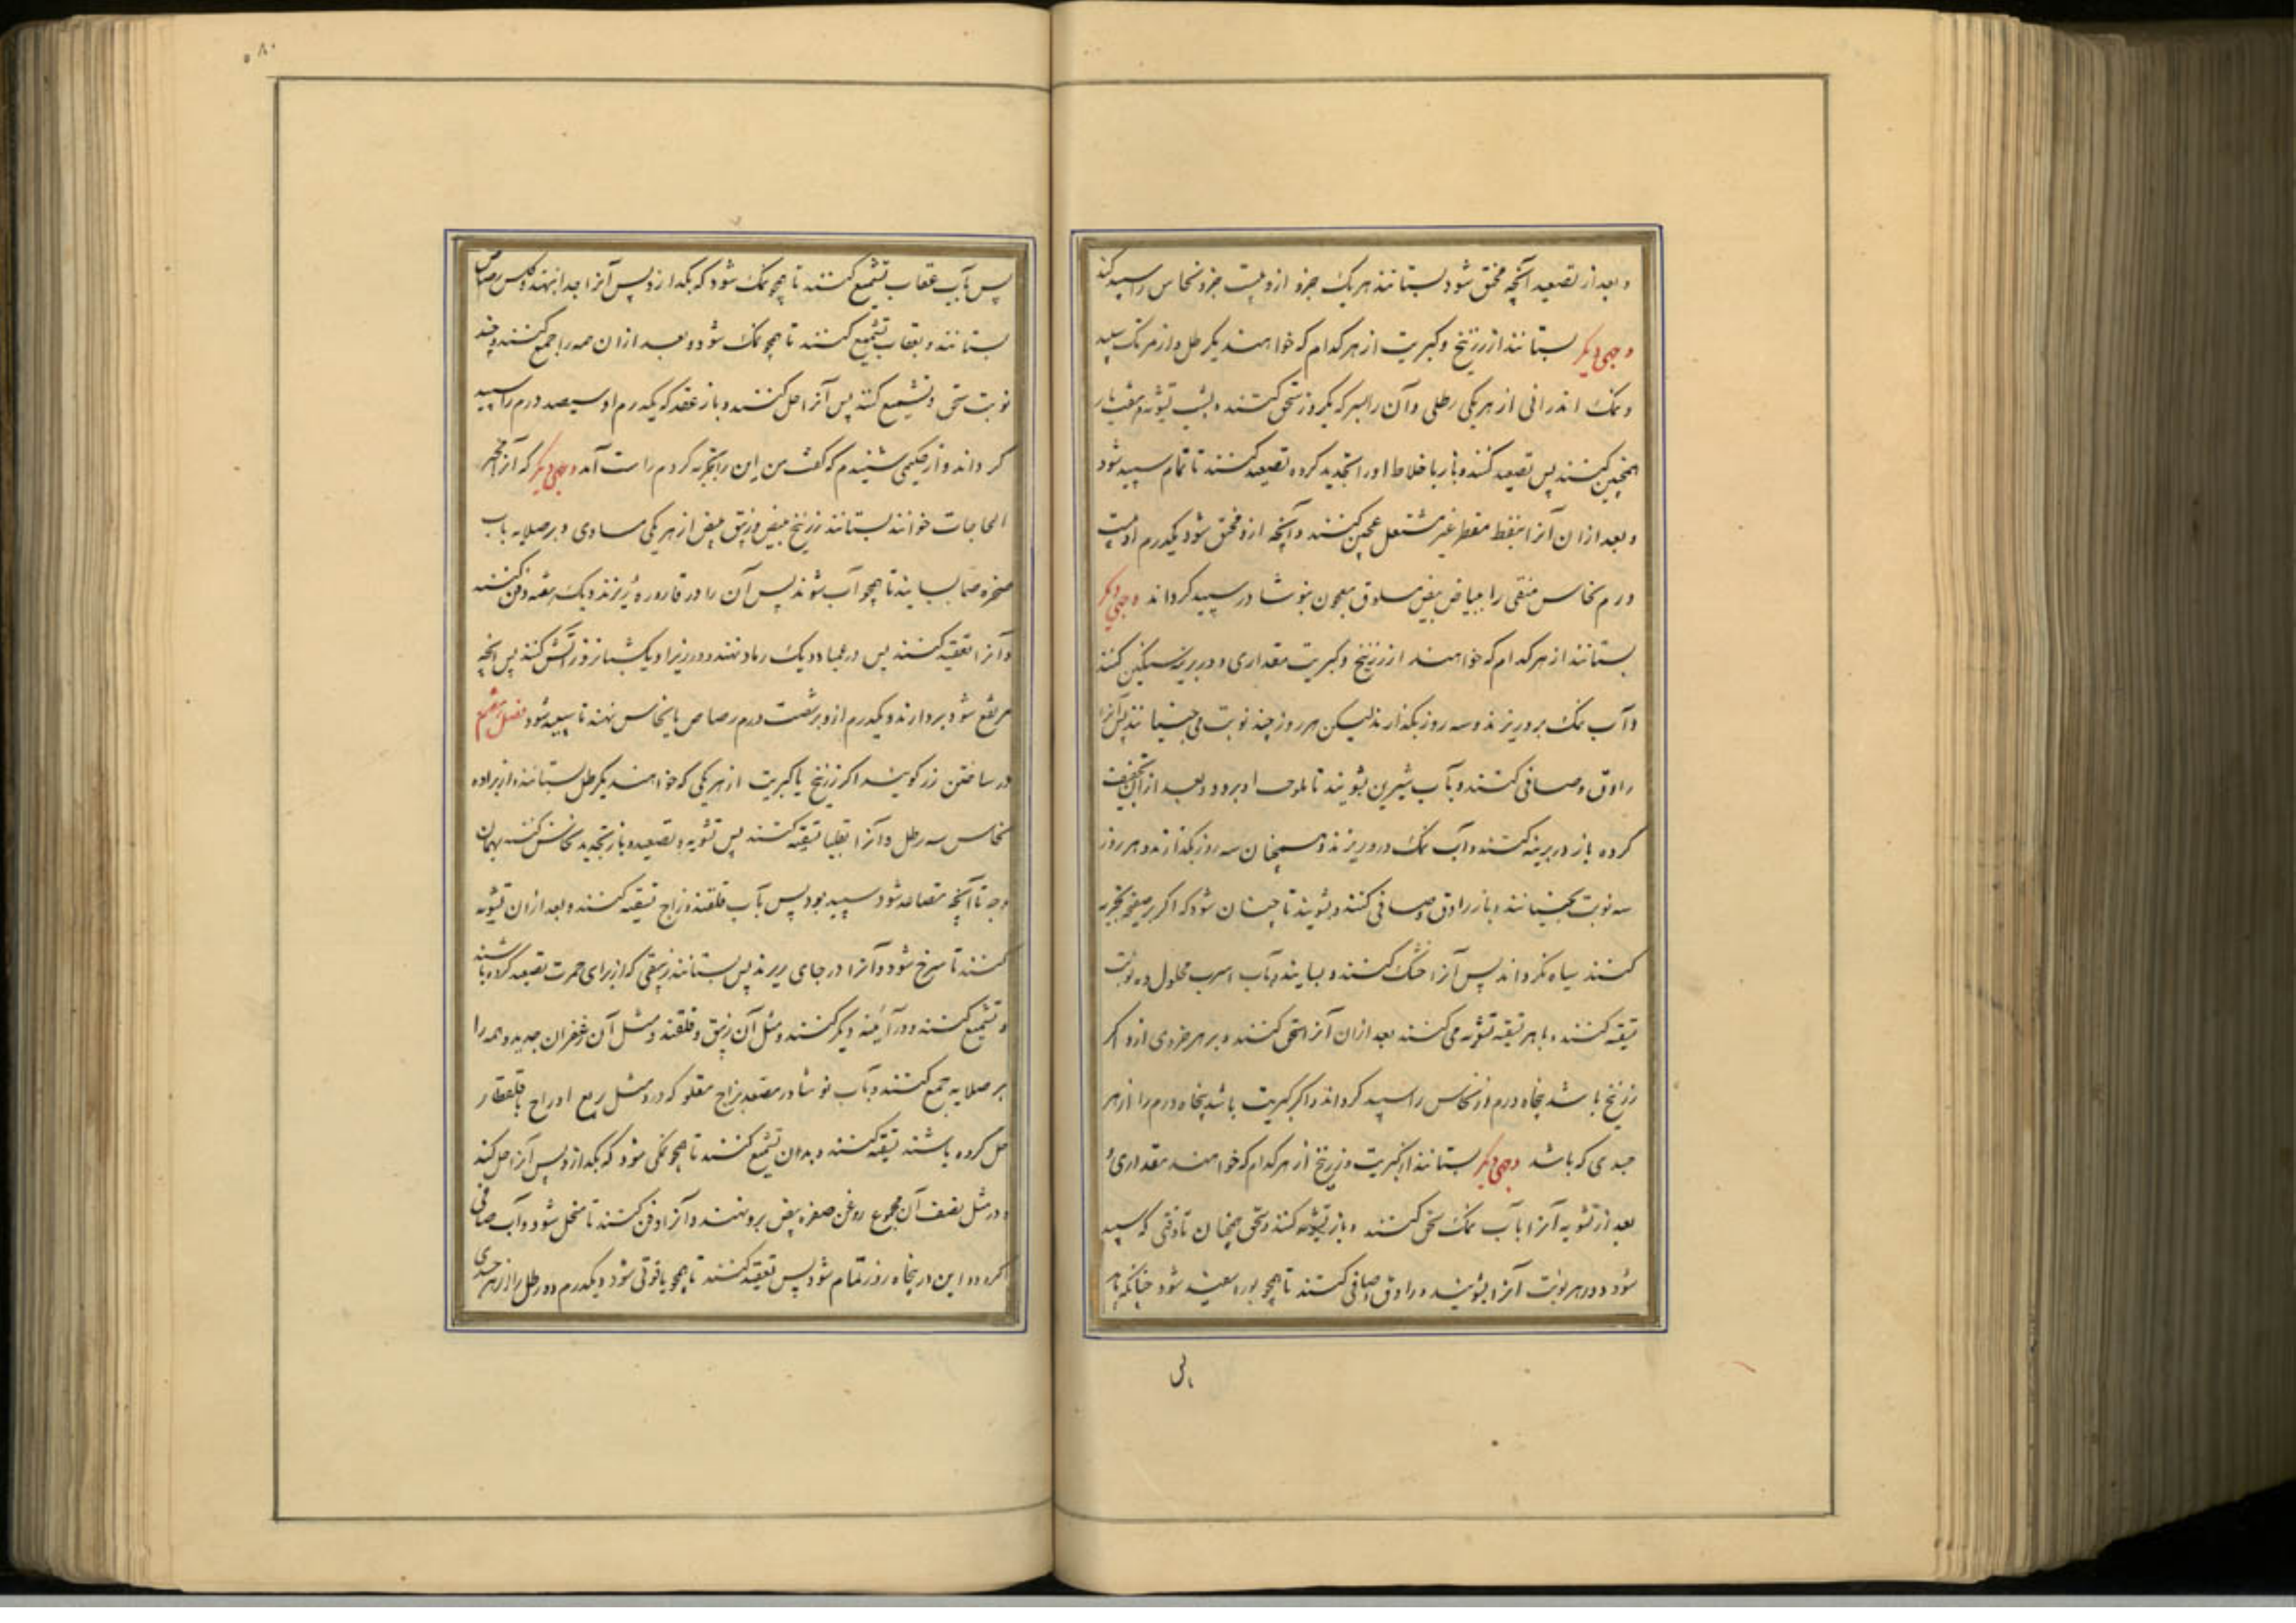 و بعد از تصعید آنچه مختق شود بستانند هر یک جزو ازو بیست جزو نحاس را سپید کند
وجهی دیگر بستانند از زرنیخ و کبریت از هر کدام که خواهند یکرطل و از مرتک سپید
و نمک اندرانی از هر یکی رطلی و آن را بسرکه یکروز سحق کنند و بشب تشویه هفت بار
همچنین کنند پس تصعید کنند و باز با خلاط او را تجدید کرده تصعید کنند تا تمام سپید شود
و بعد ازان آنرا بنفط مقطر غیر مشتعل عجین کنند و آنچه ازو مختق شود یکدرم او بیست
درم نحاس منقی را ببیاض بیض مسلوق معجون بنوشادر سپید کرداند وجهی دیگر
بستانند از هر کدام که خواهند از زرنیخ و کبریت مقداری و در برنیه سنگین کنند
و آب نمک برو ریزند و سه روز بگذارند لیکن هر روز چند نوبت می جنبانند پس آنرا
راوق و صافی کنند و بآب شیرین بشویند تا ملوحت او برود و بعد ازان تجفیف
کرده باز در برنیه کنند و آب نمک درو ریزند و همچنان سه روز بگذارند و هر روز
سه نوبت بجنبانند و باز راوق و صافی کنند و بشویند تا چنان شود که اگر بر صفحه تجربه
کنند سیاه نکرداند پس آنرا خشک کنند و بسایند و بآب اسرب محلول ده نوبت
تسقیه کنند و با هر تسقیه تشویه می کنند بعد ازان آنرا سحق کنند و بر هر جزوی ازو اکر
زرنیخ باشد پنجاه درم از نحاس را سپید کرداند و اکر کبریت باشد پنجاه درم را از هر
جسدی که باشد وجهی دیگر بستانند از کبریت و زرنیخ از هر کدام که خواهند مقداری و
بعد از تشویه آنرا بآب نمک سحق کنند و باز تشویه کنند و سحق همچنان تا وقتی که سپید
شود و در هر نوبت آنرا بشویند و راوق و صافی کنند تا همچو بوره سفید شود چنانکه با هر
پس بآب عقاب تشمیع کنند تا همچو نمک شود که بگدازد پس آنرا جدا بنهند و کلس رصاص
بستانند و بعقاب تشمیع کنند تا همچو نمک شود و بعد ازان همه را جمع کنند و چند
نوبت سحق و تشمیع کنند پس آنرا حل کنند و باز عقد که یکدرم او سیصد درم را سپید
کرداند و از حکیمی شنیدم که گفت من این را تجربه کردم راست آمد وجهی دیگر که آنرا
الحاجات خوانند بستانند زرنیخ مبیض و زیبق مبیض از هر یکی مساوی و بر صلایه باب
صخره صما بسایند تا همچو آب شوند پس آن را در قاروره ریزند و یک هفته دفن کنند
و آنرا تعقید کنند پس در عمیا و دیک رماد نهند و در زیر او یکشبانروز آتش کنند پس آنچه
مرتفع شود بردارند و یکدرم ازو بر شصت درم رصاص یا نحاس نهند تا سپید شود فصل هفتم
در ساختن زر کویند اکر زرنیخ یا کبریت از هر یکی که خواهند یکرطل بستانند و از براده
نحاس سه رطل و آنرا تسقیه کنند پس تشویه و تصعید و باز تجدید نحاسش کنند بهمان
وجه تا آنچه متصاعد شود سپید بود پس بآب قلقند و زاج تسقیه کنند و بعد ازان تشویه
کنند تا سرخ شود و آنرا در جای ریزند پس بستانند زیبقی که از برای حمرت تصعید کرده باشند
و تشمیع کنند و در آبگینه دیگر کنند و مثل آن زیبق و قلقند و مثل آن زعفران حدید و همه را
بر صلایه جمع کنند و بآب نوشادر مصعد بزاج مقلو که درو مثل ربع او زاج قلقطار
حل کرده باشند تسقیه کنند و بدان تشمیع کنند تا همچو نمکی شود که بگدازد پس آنرا حل کنند
و در مثل نصف آن مجموع روغن صفره بیض برو نهند و آنرا دفن کنند تا منحل شود و آب صافی
کردد و این در پنجاه روز تمام شود پس تعقید کنند تا همچو یاقوتی شود و یکدرم ده رطل را از هر جسدی